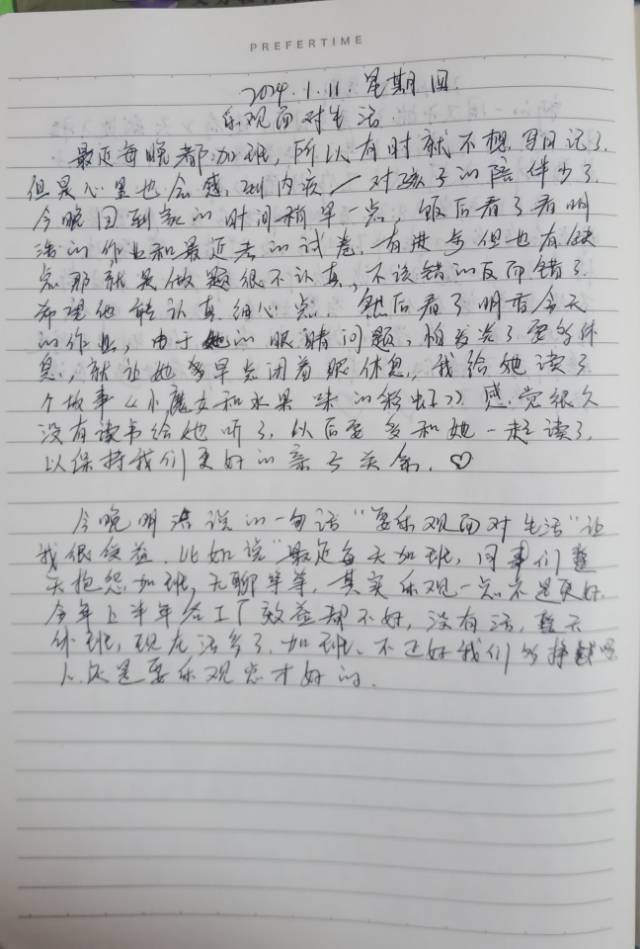 PREFERTIME
2024.1.11. 星期四.
乐观面对生活.
最近每晚都加班, 所以有时就不想写日记了.
但是心里也会感到内疚, 对孩子的陪伴少了.
今晚回到家的时间稍早一点, 饭后看了看明
浩的作业和最近考的试卷. 有进步但也有缺
点那就是做题很不认真, 不该错的反而错了.
希望他能认真细心点. 然后看了明香今天
的作业, 由于她的眼睛问题, 怕发炎了要多休
息, 就让她多早点闭着眼休息, 我给她读了
个故事《小魔女和水果味的彩虹》感觉很久
没有读书给她听了, 以后要多和她一起读了.
以保持我们更好的亲子关系. ♡
今晚明浩说的一句话"要乐观面对生活"让
我很受益. 比如说"最近每天加班, 同事们整
天抱怨加班, 无聊等等. 其实乐观一点不是更好.
今年上半年各工厂效益都不好, 没有活, 整天
休班, 现在活多了. 加班, 不正好我们多挣钱吗
人还是要乐观点才好的.